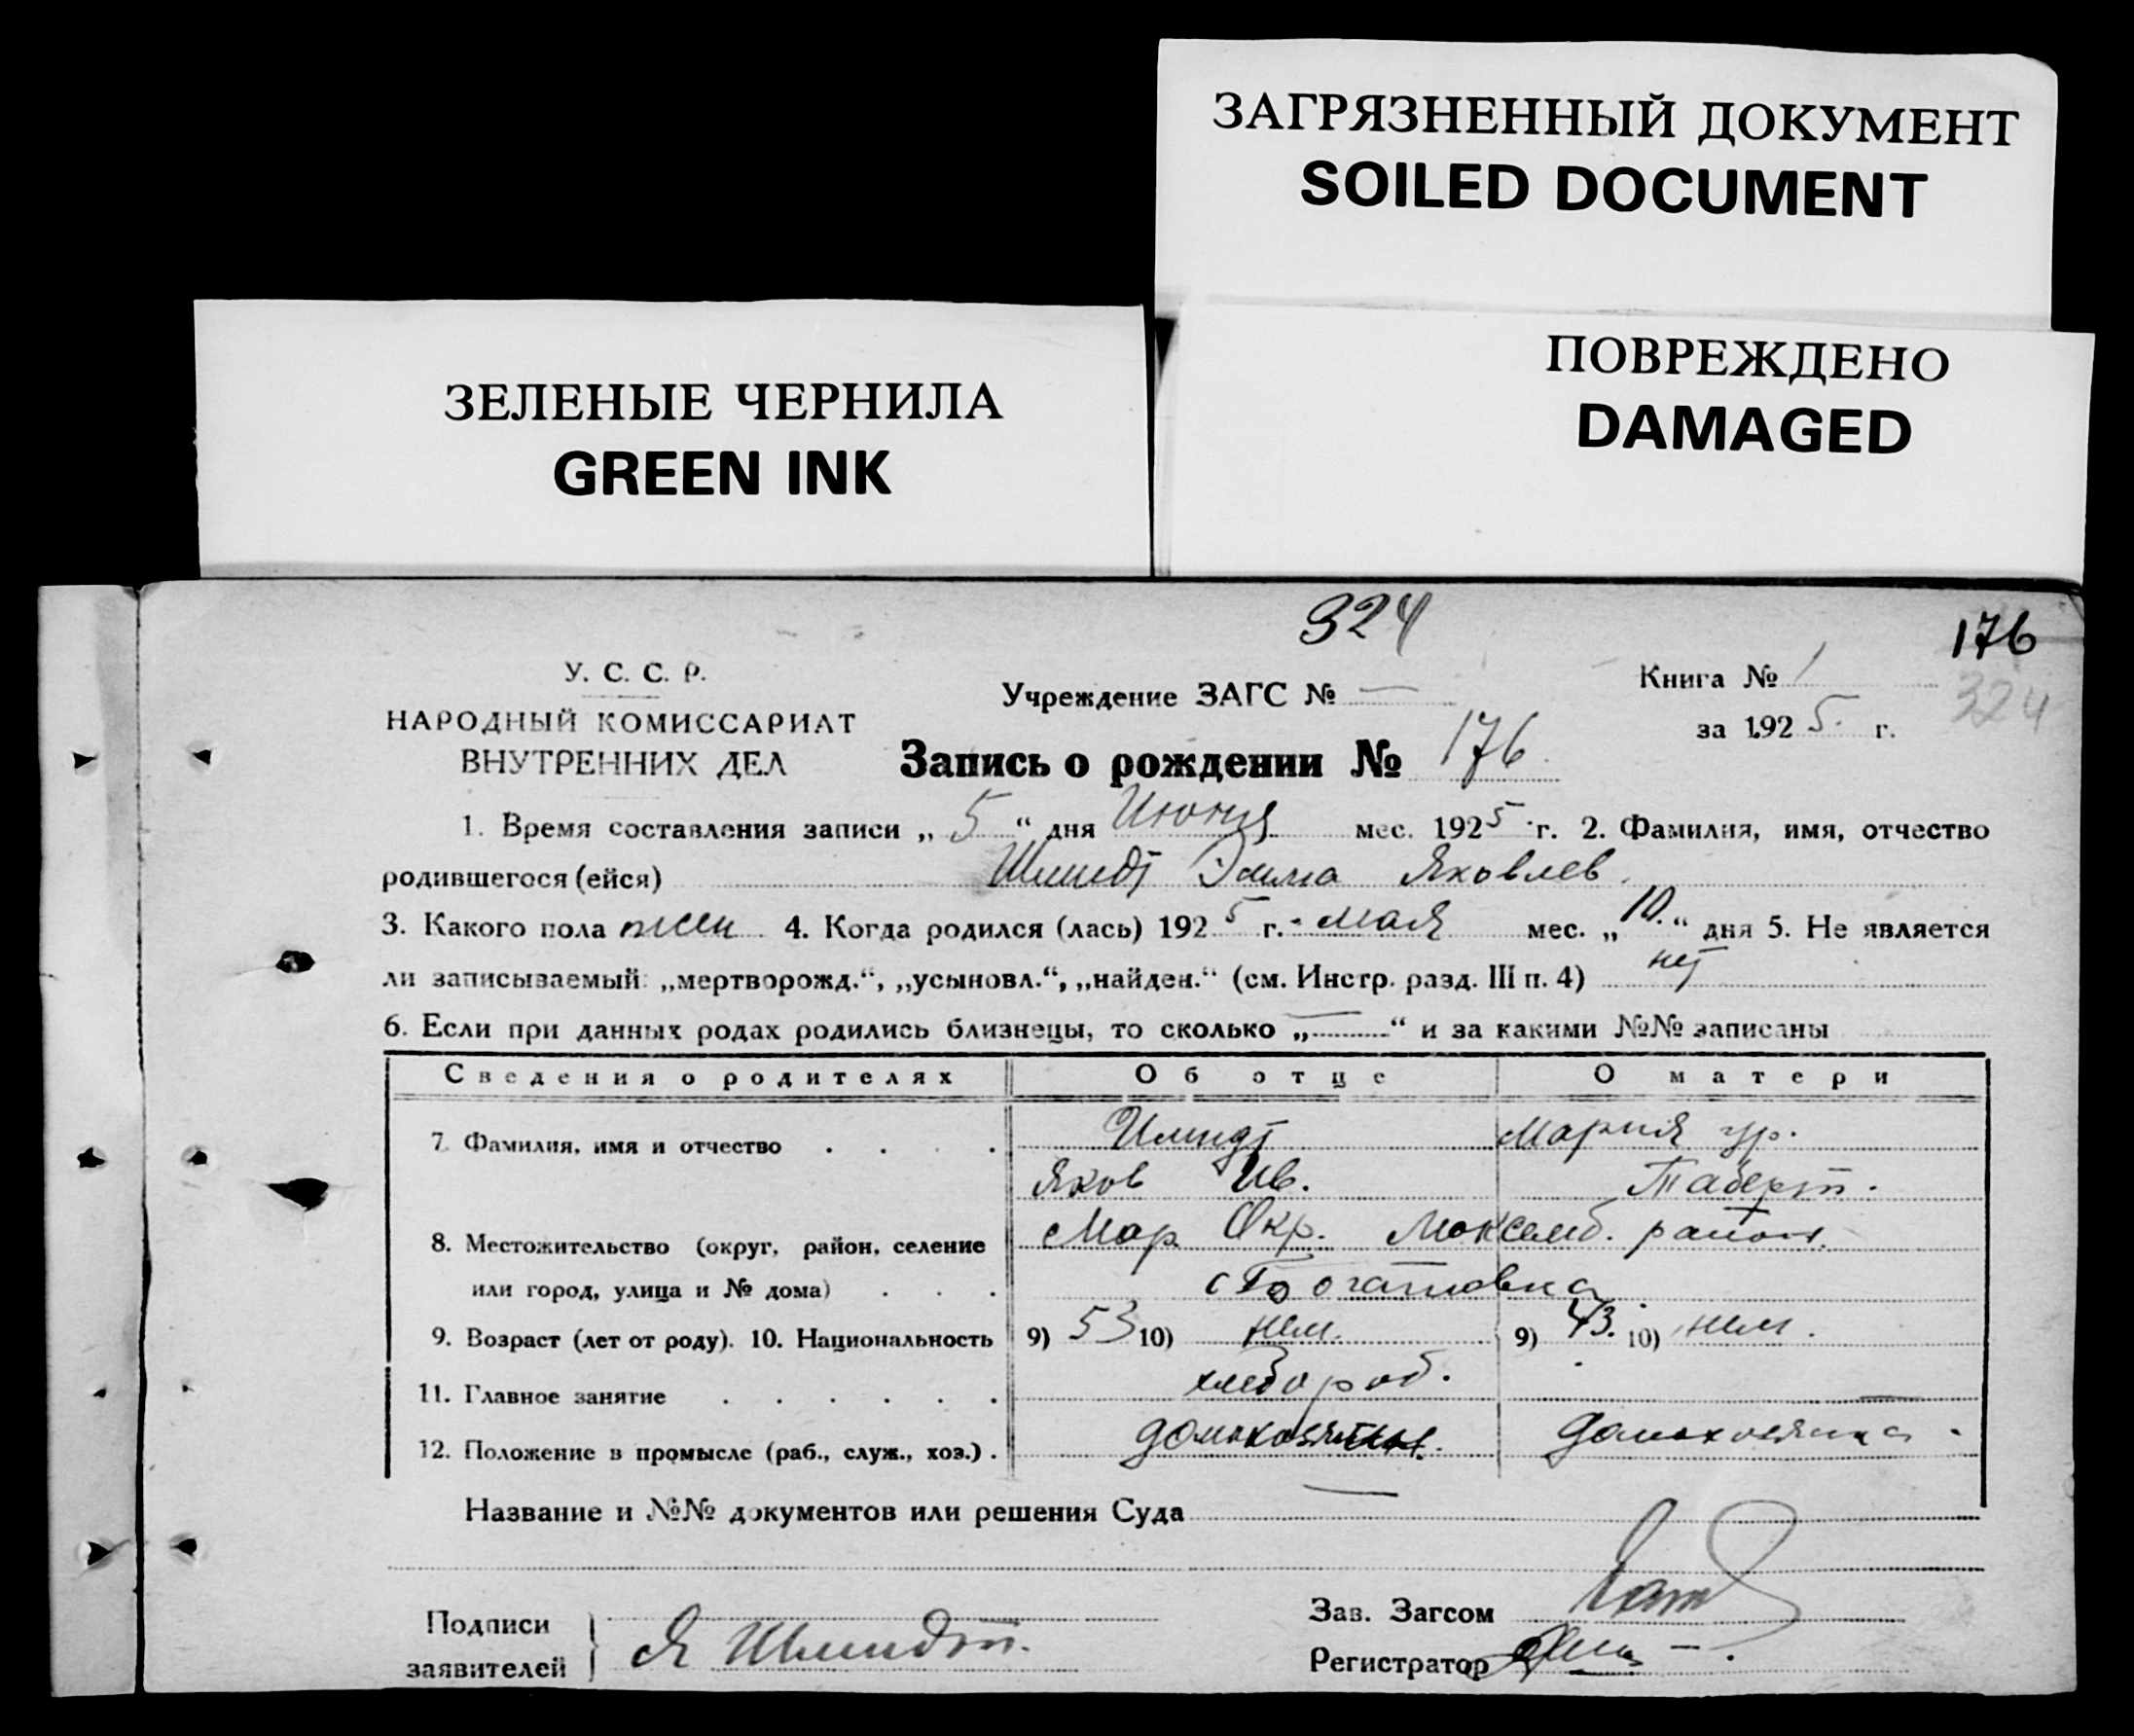 ЗАГРЯЗНЕННЫЙ ДОКУМЕНТ
SOILED DOCUMENT
ПОВРЕЖДЕНО
DAMAGED
ЗЕЛЕНЫЕ ЧЕРНИЛА
GREEN INK
324
176
324
У. С. С. Р.
НАРОДНЫЙ КОМИССАРИАТ
ВНУТРЕННИХ ДЕЛ
Учреждение ЗАГС № —
Книга № 1
за 1925 г.
Запись о рождении № 176
1. Время составления записи „ 5 “ дня Июня мес. 1925 г. 2. Фамилия, имя, отчество
родившегося (ейся) Шмидт Эмма Яковлев.
3. Какого пола жен 4. Когда родился (лась) 1925 г. мая мес. „ 10. “ дня 5. Не является
ли записываемый: „мертворожд.“, „усыновл.“, „найден.“ (см. Инстр. разд. III п. 4) нет
6. Если при данных родах родились близнецы, то сколько „ — “ и за какими №№ записаны
Сведения о родителях Об отце О матери
7. Фамилия, имя и отчество Шмидт Мария ур.
Яков Ив. Таберт.
8. Местожительство (округ, район, селение Мар Окр. Люксемб. район.
или город, улица и № дома) с Богатовка
9. Возраст (лет от роду). 10. Национальность 9) 53 10) нем. 9) 43. 10) нем.
11. Главное занятие хлебороб. —
12. Положение в промысле (раб., служ., хоз.) домохозяин. домохозяйка.
Название и №№ документов или решения Суда —
Подписи
заявителей Я Шмидт.
Зав. Загсом
Регистратор